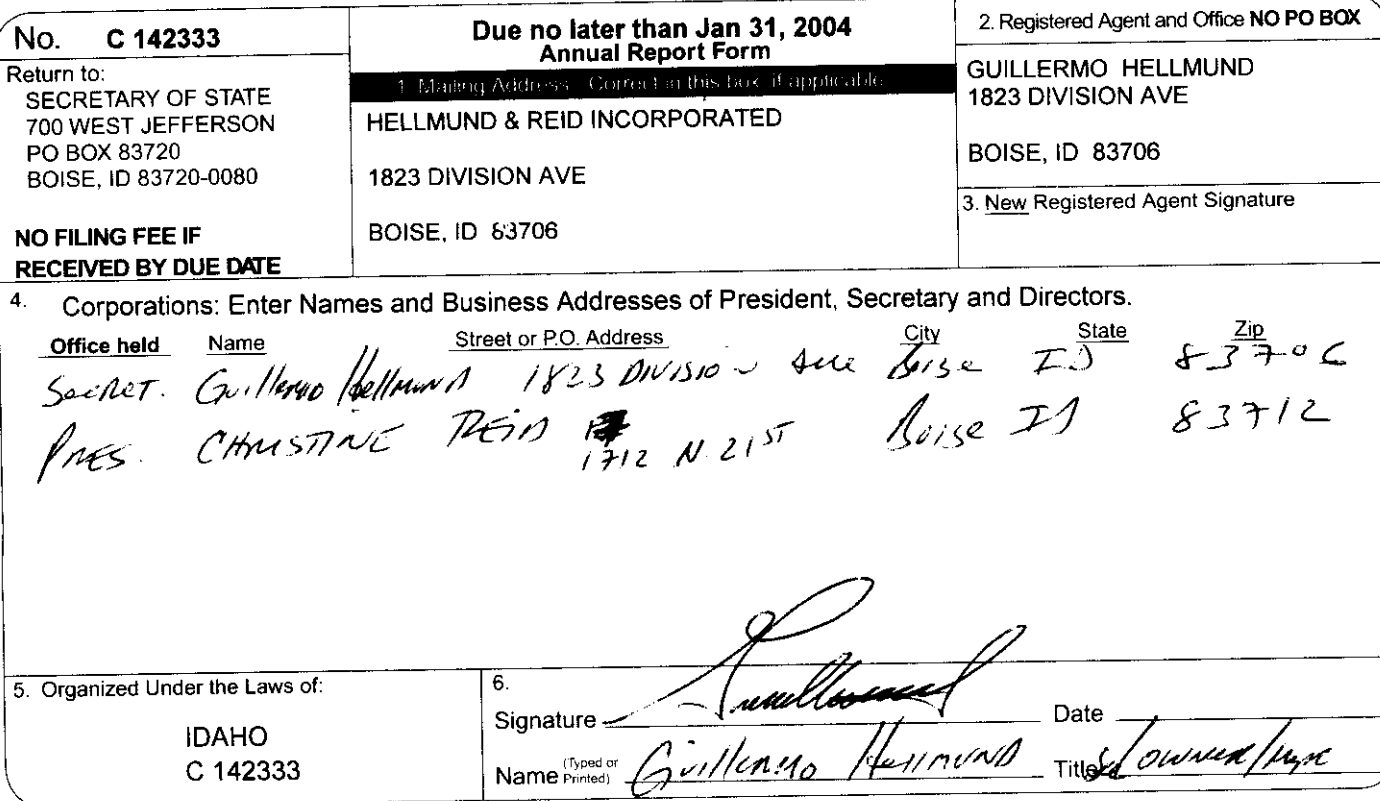 No. C 142333
Return to:
SECRETARY OF STATE
700 WEST JEFFERSON
PO BOX 83720
BOISE, ID 83720-0080
NO FILING FEE IF
RECEIVED BY DUE DATE
Due no later than Jan 31, 2004
Annual Report Form
1. Mailing Address. Correct in this box, if applicable
HELLMUND & REID INCORPORATED
1823 DIVISION AVE
BOISE, ID 83706
2. Registered Agent and Office NO PO BOX
GUILLERMO HELLMUND
1823 DIVISION AVE
BOISE, ID 83706
3. New Registered Agent Signature
4. Corporations: Enter Names and Business Addresses of President, Secretary and Directors.
Office held Name Street or P.O. Address City State Zip
Secret. Guillermo Hellmund 1823 Division Ave Boise ID 83706
Pres. CHRISTINE REID 1712 N. 21ST Boise ID 83712
5. Organized Under the Laws of:
IDAHO
C 142333
6.
Signature Date
Name (Typed or Printed) Guillermo Hellmund Title owner